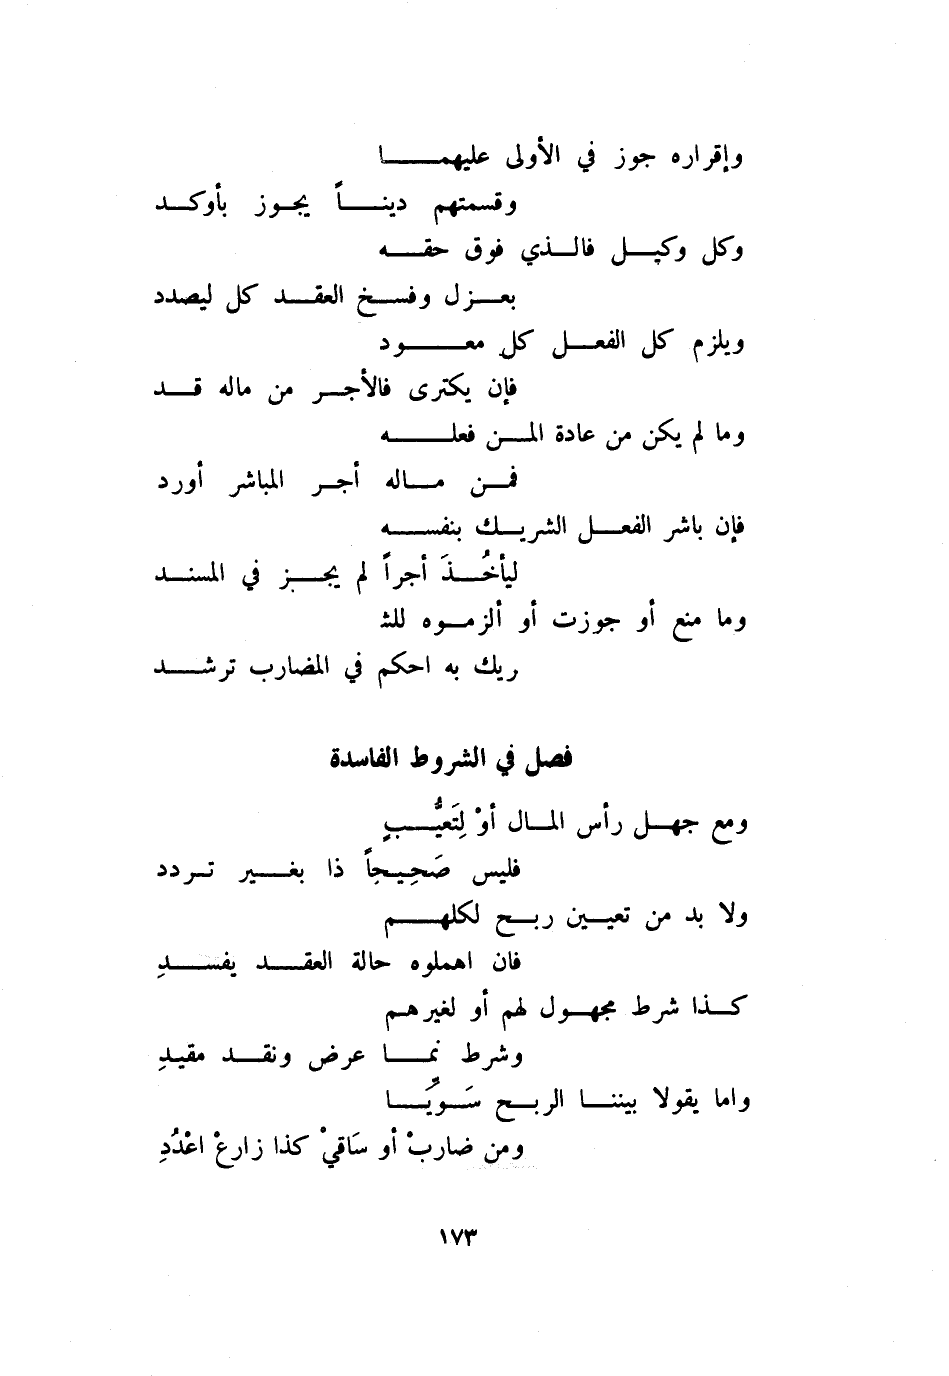 وإقراره جوز في الأولى عليهمـــــا
وقسمتهم دينـــاً يجـوز بأوكـد
وكل وكيـل فالـذي فوق حقـــه
بعـزل وفسـخ العقـد كل ليصدد
ويلزم كل الفعـل كل معـــود
فإن يكترى فالأجـر من ماله قـد
وما لم يكن من عادة المـن فعلـــه
فمـن مـاله أجـر المباشر أورد
فإن باشر الفعـل الشريـك بنفســه
ليأخُـذَ أجراً لم يجـز في المسنـد
وما منع أو جوزت أو ألزمـوه للشـ
ريك به احكم في المضارب ترشـد
فصل في الشروط الفاسدة
ومع جهـل رأس المـال أوْ لِتَعيُّـبٍ
فليس صَحِيـحِاً ذا بغـير تـردد
ولا بد من تعيـين ربـح لكلهــم
فان اهملوه حالة العقـد يفسـدِ
كـذا شرط مجهـول لهم أو لغيرهـم
وشرط نمـا عرض ونقـد مقيـدِ
واما يقولا بيننـا الربـح سَـويًّـا
ومن ضاربْ أو سَاقيْ كذا زارعْ اعْدُدِ
١٧٣